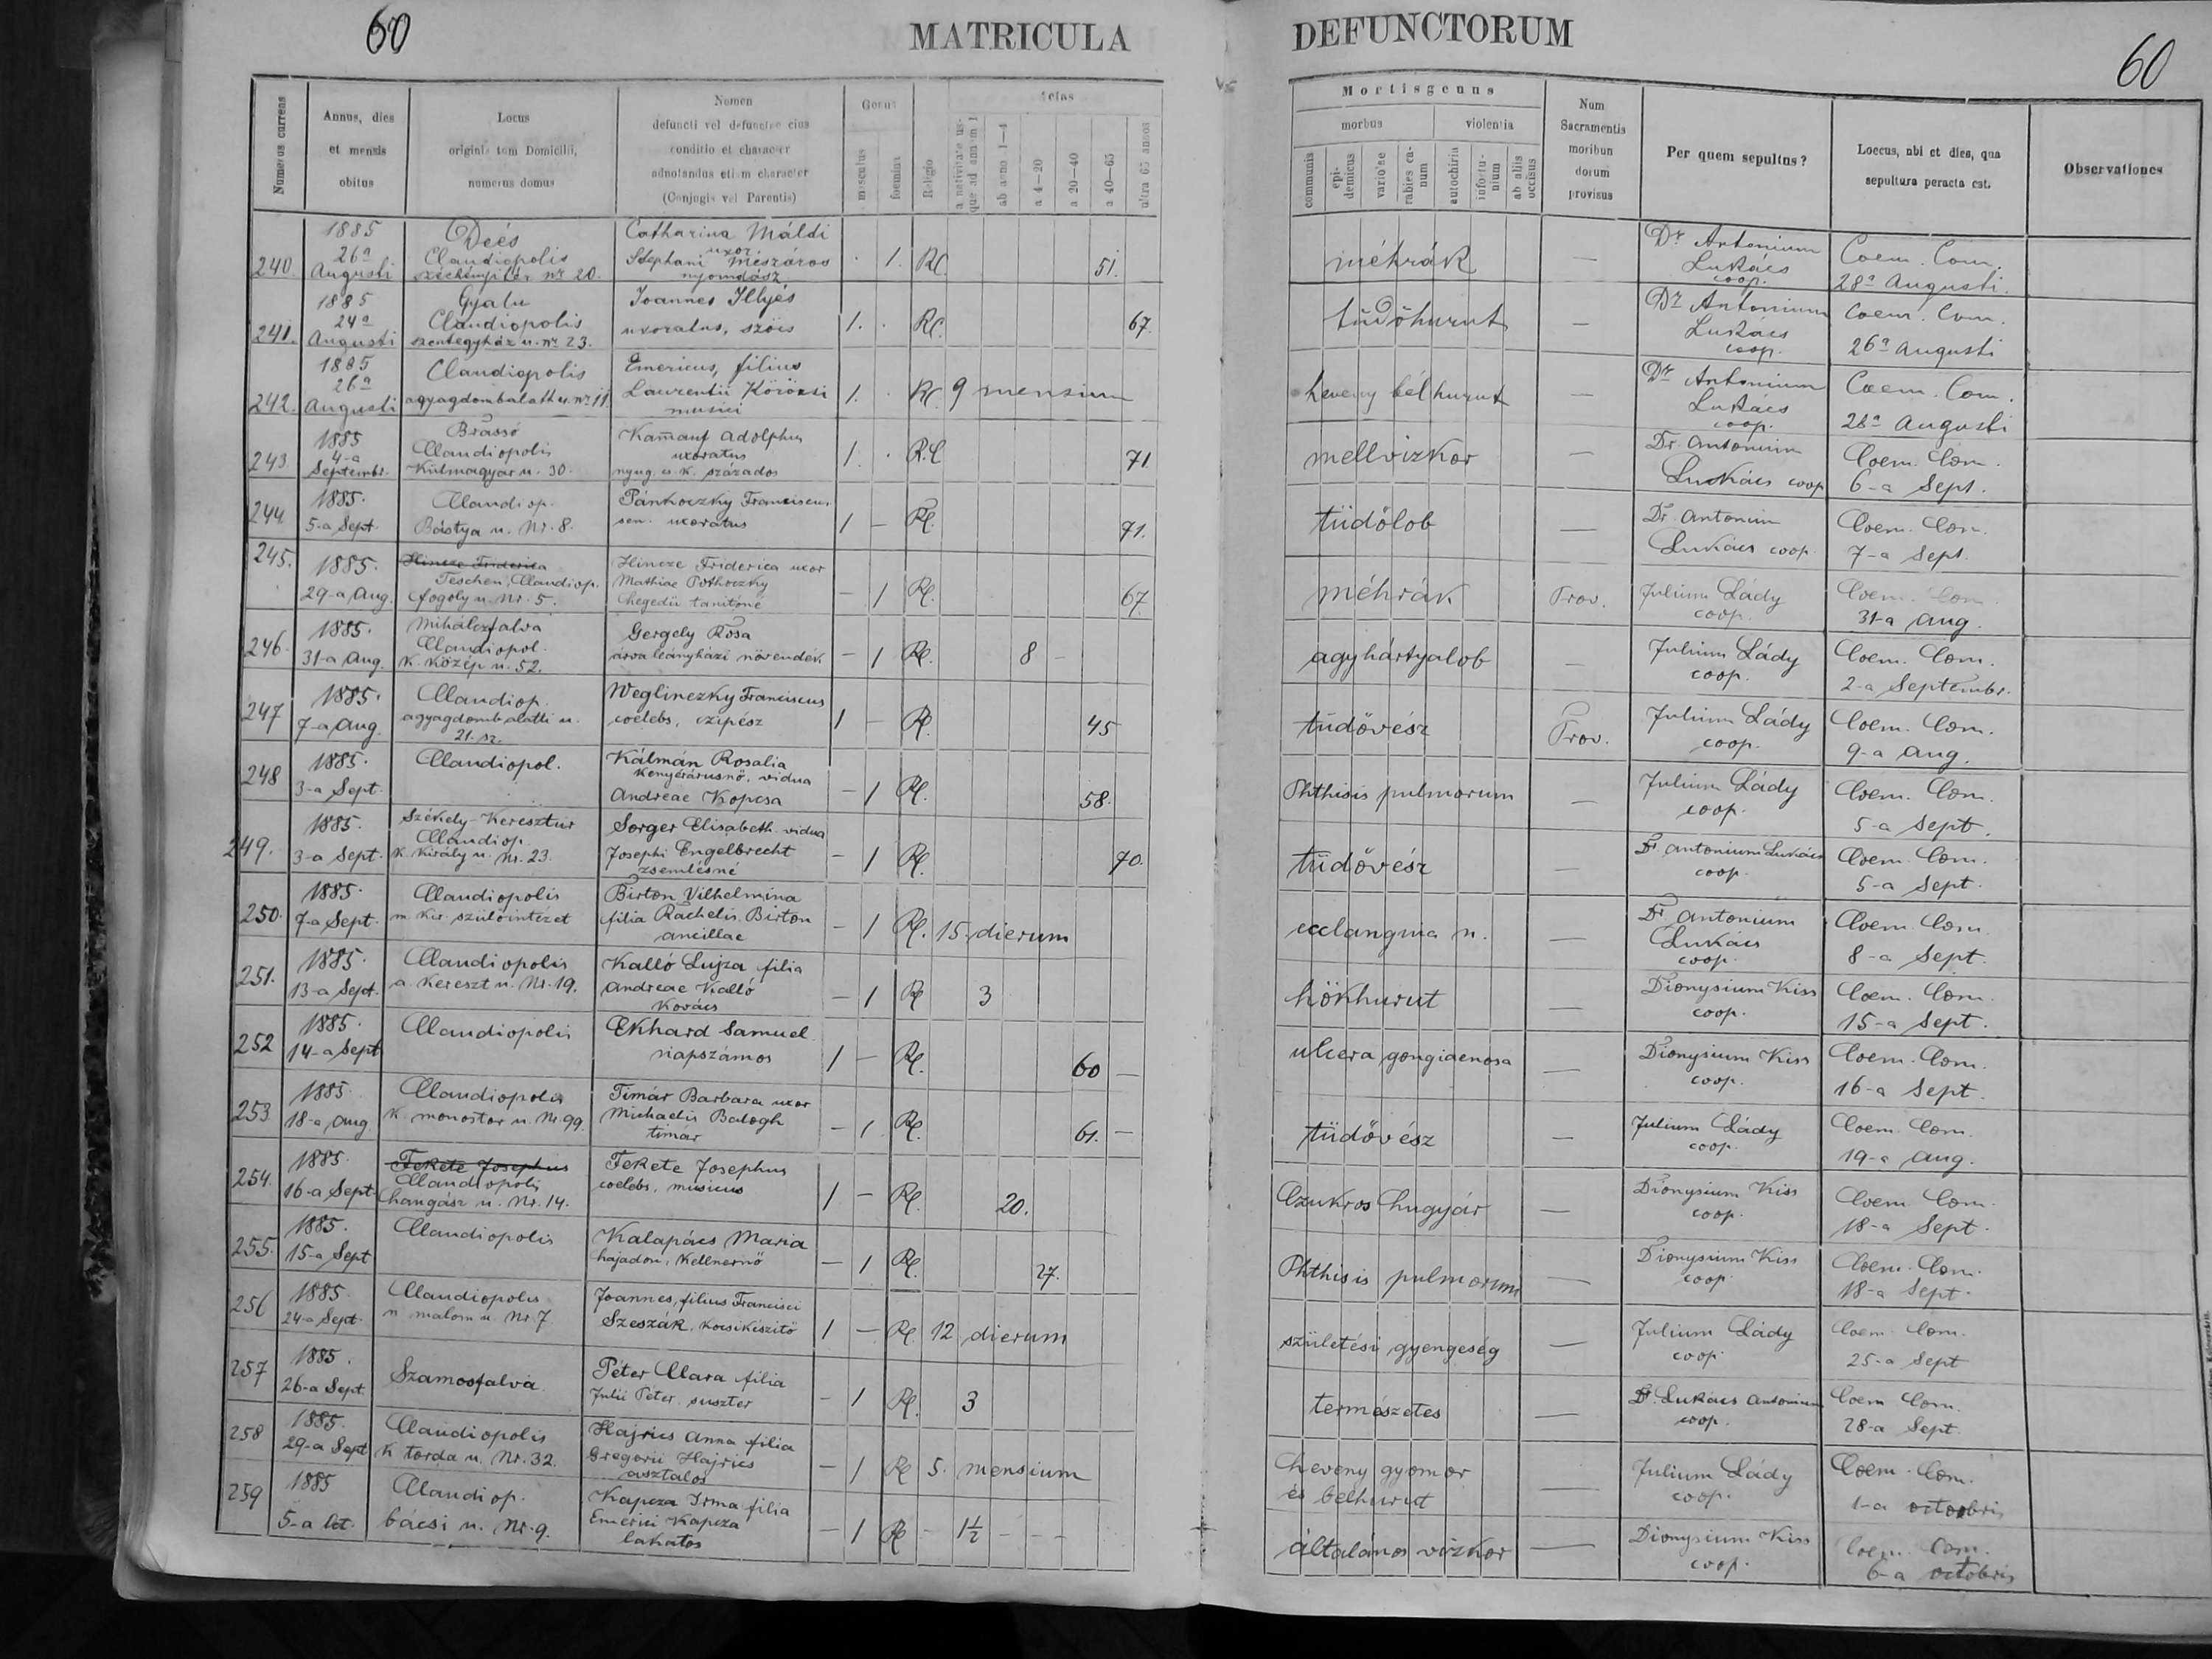 60
MATRICULA DEFUNCTORUM
60
Numerus currens
Annus, dies et mensis obitus
Locus originis tam Domicilii, numerus domus
Nomen defuncti vel defunctae eius conditio et character adnotandus etiam character (Conjugis vel Parentis)
Genus
masculus
foemina
Religio
Aetas
a nativitate usque ad annum 1
ab anno 1—4
a 4—20
a 20—40
a 40—65
ultra 65 annos
Mortisgenus
morbus
violentia
communis
epidemicus
variolae
rabies canum
autochiria
infortunium
ab aliis occisus
Num Sacramentis moribundorum provisus
Per quem sepultus?
Locus, ubi et dies, qua sepultura peracta est.
Observationes
240. 1885 26a Augusti
Deés Claudiopolis széchényi tér nr 20.
Catharina Máldi uxor Stephani Mészáros nyomdász
1. RC. 51. méhrák —
Dr Antonium Lukács coop.
Coem. Com. 28a Augusti.
241. 1885 24a Augusti
Gyalu Claudiopolis szentegyház u. nr 23.
Joannes Illyés uxoratus, szöcs
1. RC. 67. tüdöhurut —
Dr Antonium Lukács coop.
Coem. Com. 26a Augusti
242. 1885 26a Augusti
Claudiopolis agyagdombalatt u. nr 11.
Emericus, filius Laurentii Körözsi musici
1. RC. 9 mensium heveny bélhurut —
Dr Antonium Lukács coop.
Coem. Com. 28a Augusti
243. 1885 4-a Septembr.
Brassó Claudiopolis Külmagyar u. 30.
Kamauf Adolphus uxoratus nyug. u. k. százados
1. R.C 71. mellvizkor —
Dr. Antonium Lukács coop
Coem. Com. 6-a Sept.
244 1885. 5-a Sept.
Claudiop. Bástya u. Nr. 8.
Pánhoczky Franciscus sen. uxoratus
1 — RC. 71. tüdőlob —
Dr. Antonium Lukács coop.
Coem. Com. 7-a Sept.
245. 1885. 29-a Aug.
Hincze Friderica
Teschen, Claudiop. fogoly u. Nr. 5.
Hincze Friderica uxor Mathiae Pothoczky hegedü tanítóné
— 1 RC. 67. méhrák Prov.
Julium Lády coop.
Coem. Com. 31-a Aug.
246. 1885. 31-a Aug.
Mihálczfalva Claudiopol. k. közép u. 52.
Gergely Rosa árva leányházi növendék
— 1 RC. 8 — agyhártyalob —
Julium Lády coop.
Coem. Com. 2-a Septembr.
247 1885. 7-a Aug.
Claudiop. agyagdomb alatti u. 21. sz.
Weglinczky Franciscus coelebs, czipész
1 — RC. 45 tüdővész Prov.
Julium Lády coop.
Coem. Com. 9-a Aug.
248 1885. 3-a Sept.
Claudiopol.
Kálmán Rosalia kenyérárusnő, vidua Andreae Kopcsa
— 1 RC. 58. Phthisis pulmorum —
Julium Lády coop.
Coem. Com. 5-a Sept.
249. 1885. 3-a Sept.
Székely-Keresztúr Claudiop. k. király u. Nr. 23.
Sorger Elisabeth vidua Josephi Engelbrecht zsemlésné
— 1 RC. 70. tüdővész —
Dr Antonium Lukács coop.
Coem. Com. 5-a Sept.
250. 1885. 7-a Sept.
Claudiopolis m. kir. szülőintézet
Birton Vilhelmina filia Rachelis Birton ancillae
— 1 RC. 15 dierum
Dr Antonium Lukács coop.
Coem. Com. 8-a Sept.
251. 1885. 13-a Sept.
Claudiopolis a. kereszt u. Nr. 19.
Kalló Lujza filia Andreae Kalló kovács
— 1 RC 3 hökhurut —
Dionysium Kiss coop.
Coem. Com. 15-a Sept.
252 1885. 14-a Sept
Claudiopolis
Ekhard Samuel napszámos
1 — RC. 60 — ulcera gongiaenosa —
Dionysium Kiss coop.
Coem. Com. 16-a Sept.
253 1885. 18-a Aug.
Claudiopolis k. monostor u. Nr. 99.
Timár Barbara uxor Michaelis Balogh timár
— 1 RC. 61. — tüdővész —
Julium Lády coop.
Coem. Com. 19-a Aug.
254. 1885. 16-a Sept.
Fekete Josephus
Claudiopolis hangász u. Nr. 14.
Fekete Josephus coelebs, musicus
1 — RC. 20. Czukros hugyár —
Dionysium Kiss coop.
Coem. Com. 18-a Sept.
255. 1885. 15-a Sept
Claudiopolis
Kalapács Maria hajadon, kellnernő
— 1 RC. 27. Phthisis pulmorum —
Dionysium Kiss coop.
Coem. Com. 18-a Sept.
256 1885. 24-a Sept.
Claudiopolis n malom u. Nr. 7
Joannes, filius Francisci Szeszák, kocsikészítő
1 — RC. 12 dierum születési gyengeség —
Julium Lády coop.
Coem. Com. 25-a Sept
257 1885. 26-a Sept.
Szamosfalva
Péter Clara filia Julii Péter suszter
— 1 RC. 3 természetes —
Dr. Lukács Antonium coop.
Coem Com. 28-a Sept.
258 1885. 29-a Sept
Claudiopolis k torda u. Nr. 32.
Hajnics Anna filia Gregorii Hajnics asztalos
— 1 RC 5. mensium heveny gyomor és bélhurut —
Julium Lády coop.
Coem. Com. 1-a octobris
259 1885 5-a Oct.
Claudiop. bácsi u. Nr. 9.
Kapcza Irma filia Emerici Kapcza lakatos
— 1 RC — 1½ — — — általános vizkor —
Dionysium Kiss coop.
Coem. Com. 6-a octobris